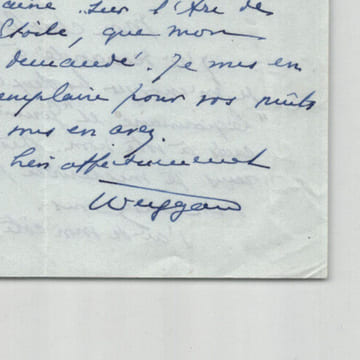 aine. Sur l'Arc de
Etoile, que mon
demandé. Je mets en
emplaire pour vos
mis en avez.
bien affectueusement
Weygand